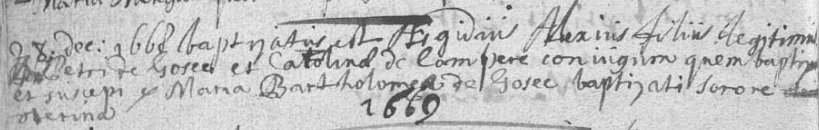 28. dec: 1668 baptizatus est Aegidius Alexius filius legitimus
Petri de Gosee et Catolina de Lampere coniugum quem baptizavi
et suscepi ex Maria Bartholomea de Gosee baptizati sorore
uterina
1669